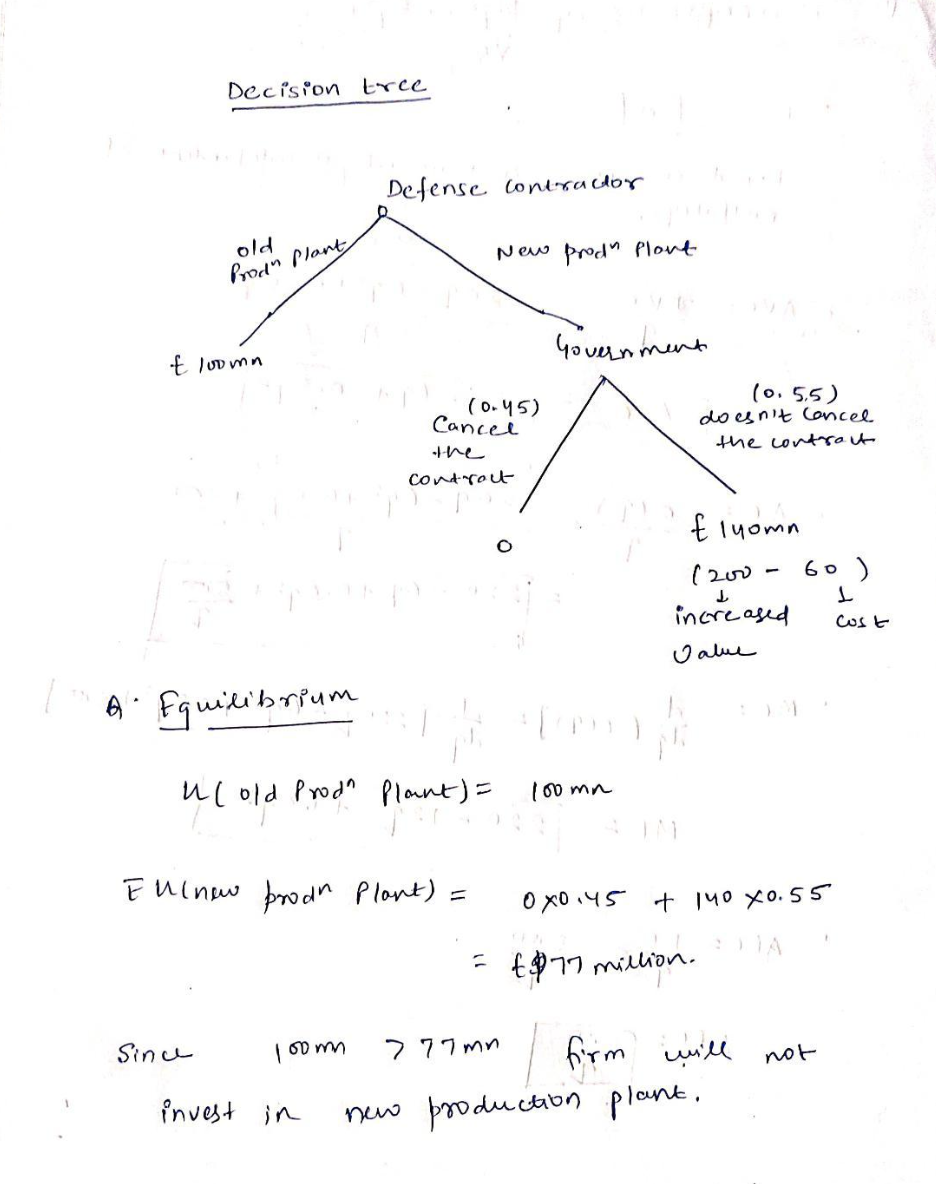 Decision tree
Defense contractor
old
Prodⁿ Plant
New prodⁿ Plant
£ 100mn
Government
(0.45)
Cancel
the
contract
(0.55)
doesn't Cancel
the contract
0
£ 140mn
(200 - 60)
↓ ↓
increased cost
Value
Q. Equilibrium
U( old Prodⁿ Plant) = 100 mn
E U(new prodⁿ Plant) = 0x0.45 + 140 x0.55
= £ 77 million.
Since 100mn > 77mn firm will not
invest in new production plant.